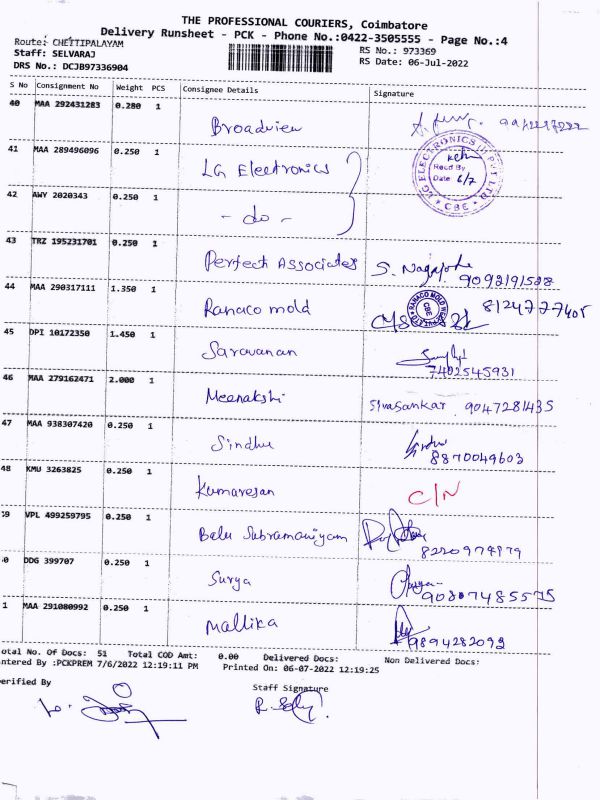 THE PROFESSIONAL COURIERS, Coimbatore
Delivery Runsheet - PCK - Phone No.:0422-3505555 - Page No.:4
Route: CHETTIPALAYAM
Staff: SELVARAJ
DRS No.: DCJB97336904
RS No.: 973369
RS Date: 06-Jul-2022
S No Consignment No Weight PCS Consignee Details Signature
40 MAA 292431283 0.280 1
Broadview
41 MAA 289496096 0.250 1
LG Electronics
LG ELECTRONICS
Recd By
Date 6/7
CBE
42 AWY 2020343 0.250 1
- do -
43 TRZ 195231701 0.250 1
Perfect Associates S. 9092191528
44 MAA 290317111 1.350 1
Ranaco mold 8124777405
RANACO MOLD
CBE
45 DPI 10172350 1.450 1
Saravanan
7402545931
46 MAA 279162471 2.000 1
Meenakshi Sivasankar 9047281435
47 MAA 938307420 0.250 1
Sindhu
8870049603
48 KMU 3263825 0.250 1
Kumaresan C/N
59 VPL 499259795 0.250 1
Balu Subramaniyam
8220974879
0 DDG 399707 0.250 1
Surya
90807485575
1 MAA 291080992 0.250 1
Mallika
9894282092
otal No. Of Docs: 51 Total COD Amt: 0.00 Delivered Docs: Non Delivered Docs:
ntered By :PCKPREM 7/6/2022 12:19:11 PM Printed On: 06-07-2022 12:19:25
erified By
Staff Signature